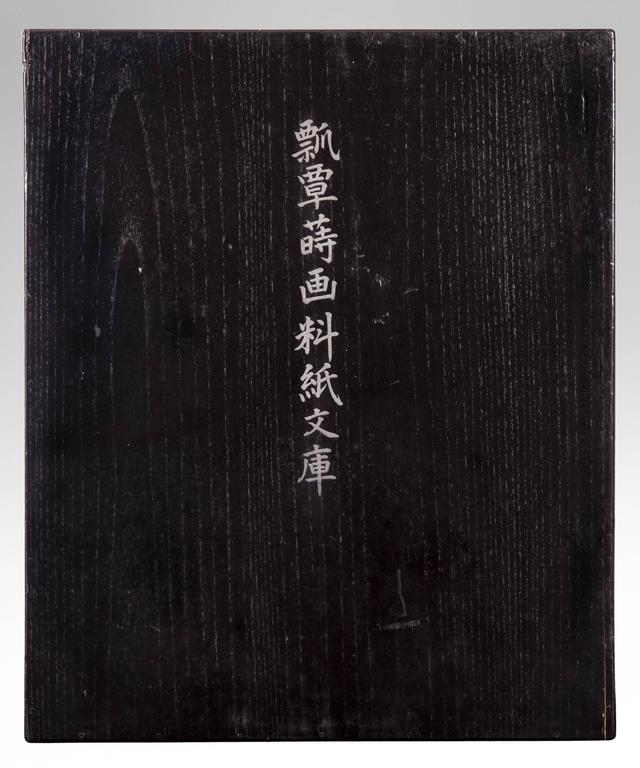 瓢覃蒔画料紙文庫